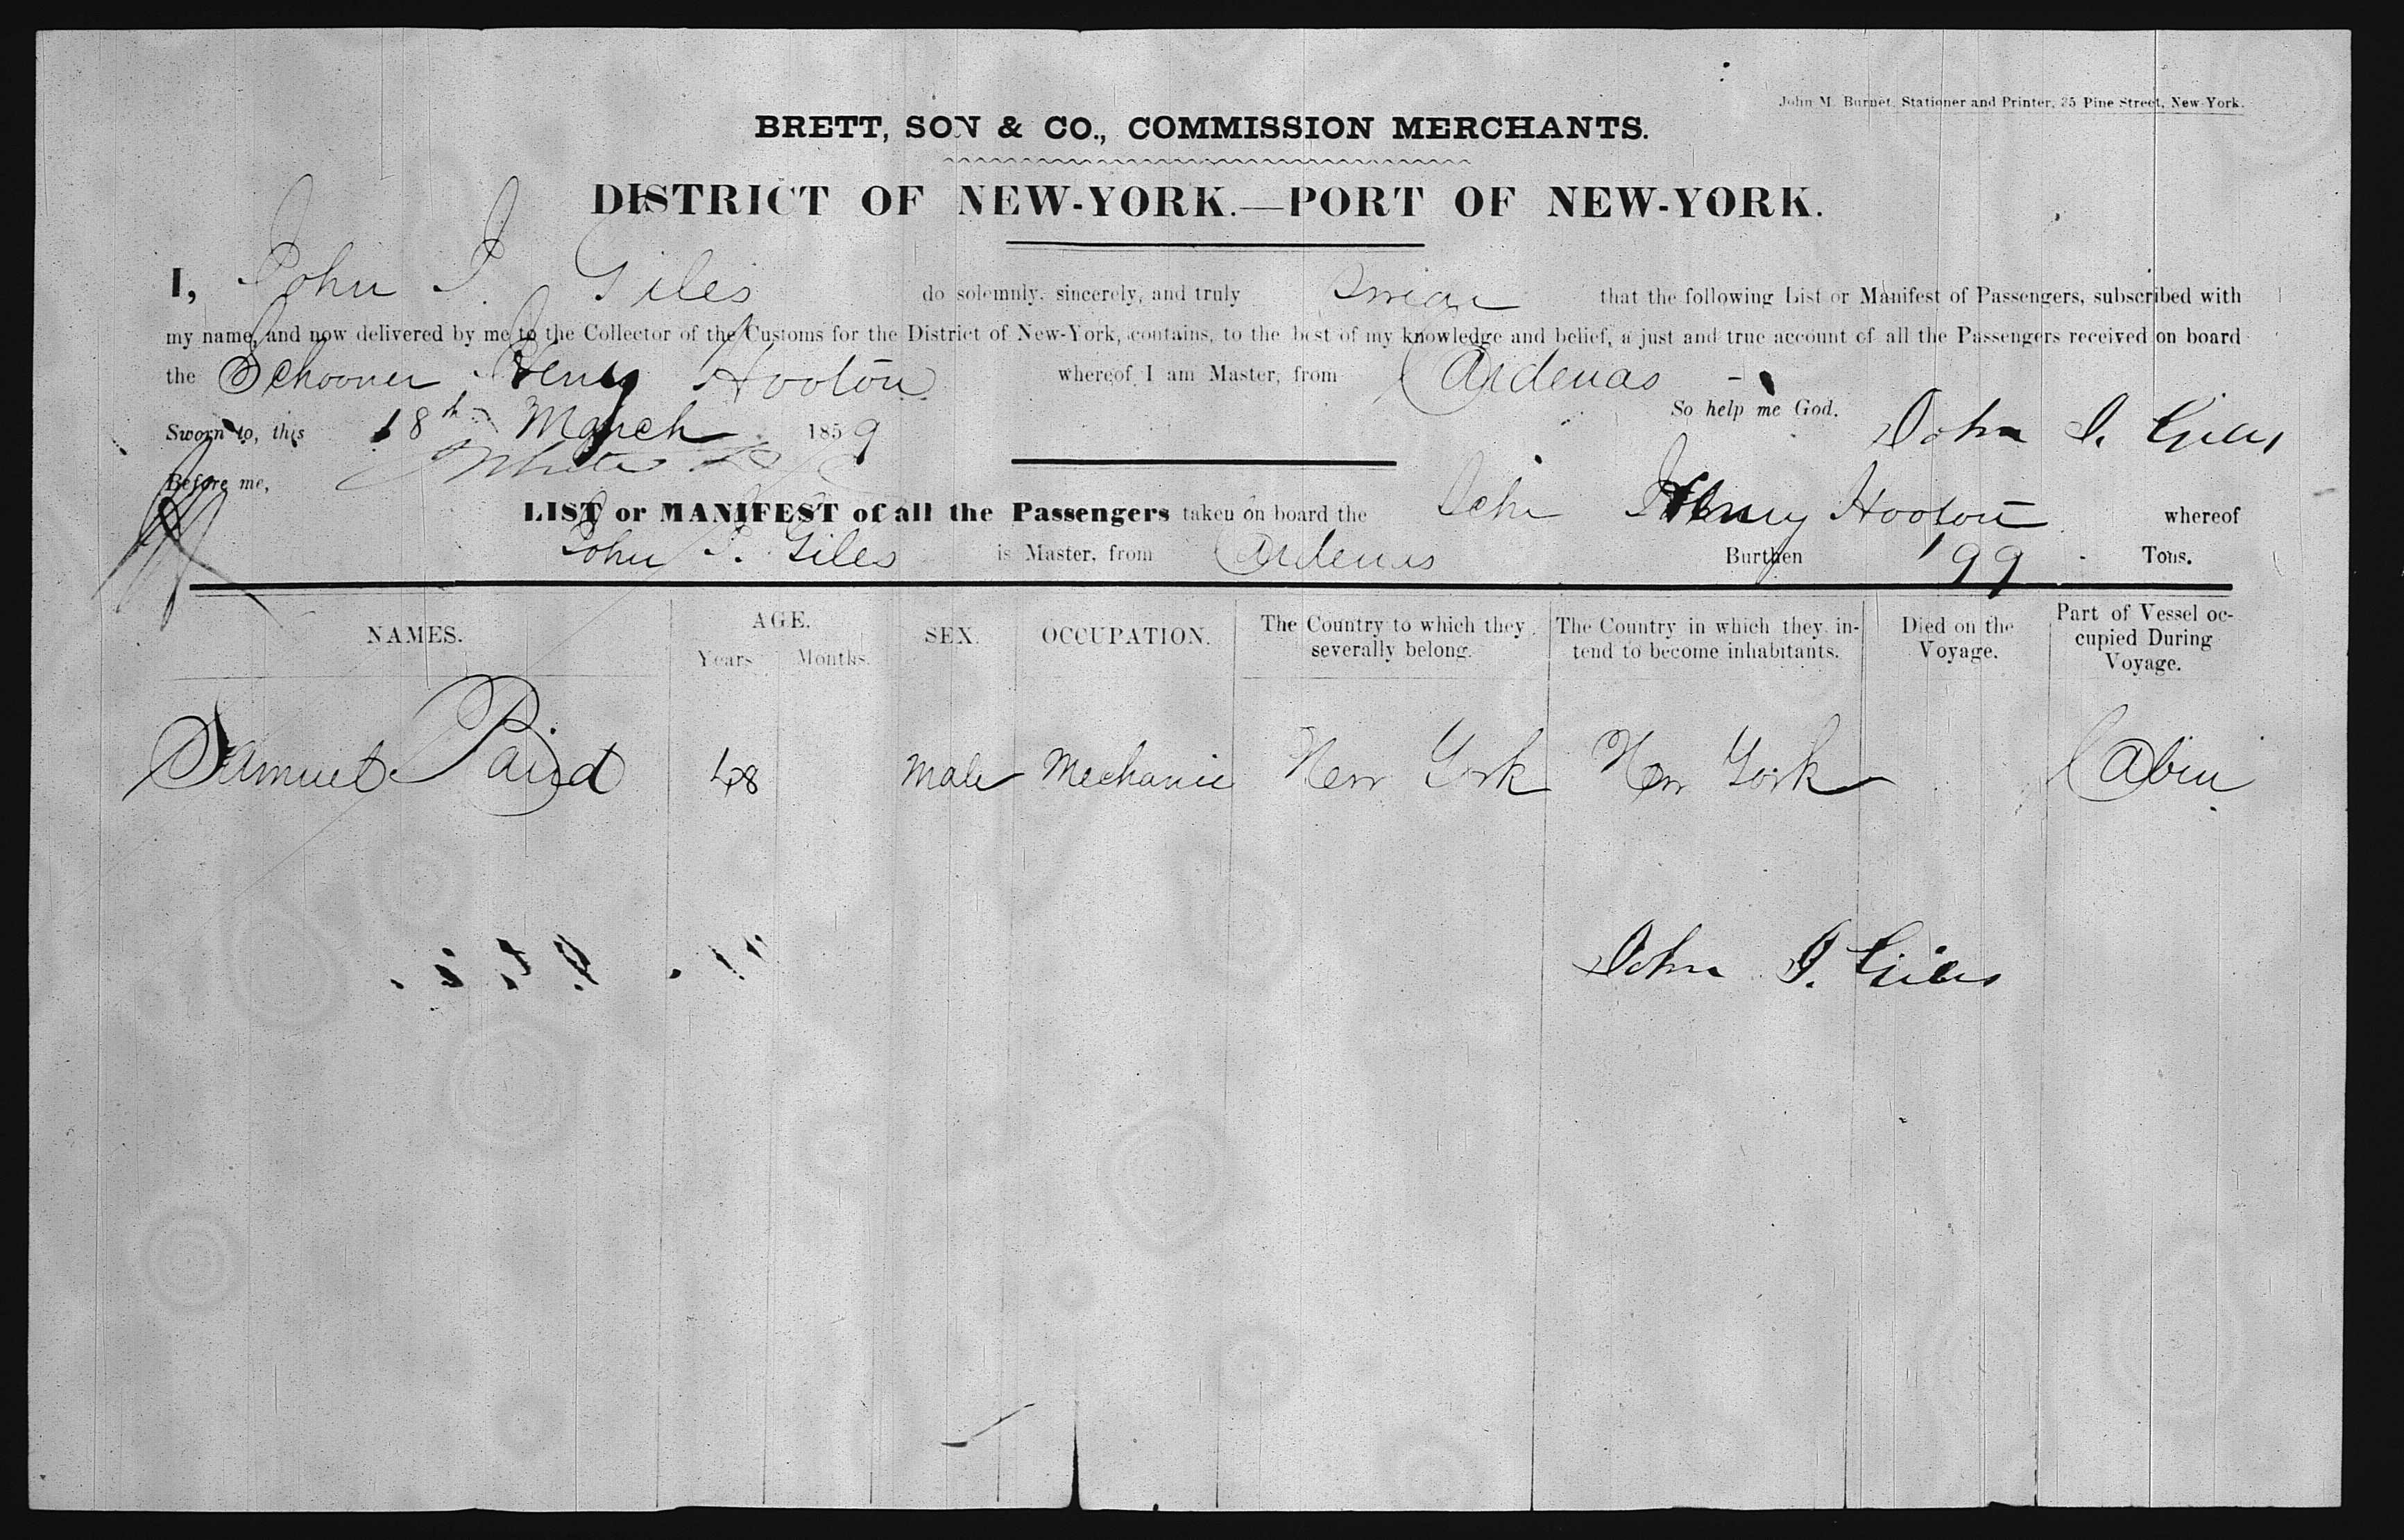 John M. Burnet, Stationer and Printer, 35 Pine Street, New-York.
BRETT, SON & CO., COMMISSION MERCHANTS.
DISTRICT OF NEW-YORK.—PORT OF NEW-YORK.
I, John I. Giles do solemnly, sincerely, and truly Swear that the following List or Manifest of Passengers, subscribed with
my name, and now delivered by me to the Collector of the Customs for the District of New-York, contains, to the best of my knowledge and belief, a just and true account of all the Passengers received on board
the Schooner Henry Hooton whereof I am Master, from Cardenas
So help me God.
Sworn to, this 18th March 1859 John I. Giles
Before me,
LIST or MANIFEST of all the Passengers taken on board the Schr Henry Hooton whereof
John I. Giles is Master, from Cardenas Burthen 199 Tons.
NAMES. AGE. Years Months. SEX. OCCUPATION. The Country to which they severally belong. The Country in which they intend to become inhabitants. Died on the Voyage. Part of Vessel occupied During Voyage.
Samuel Baird 48 Male Mechanic New York New York Cabin
John I. Giles